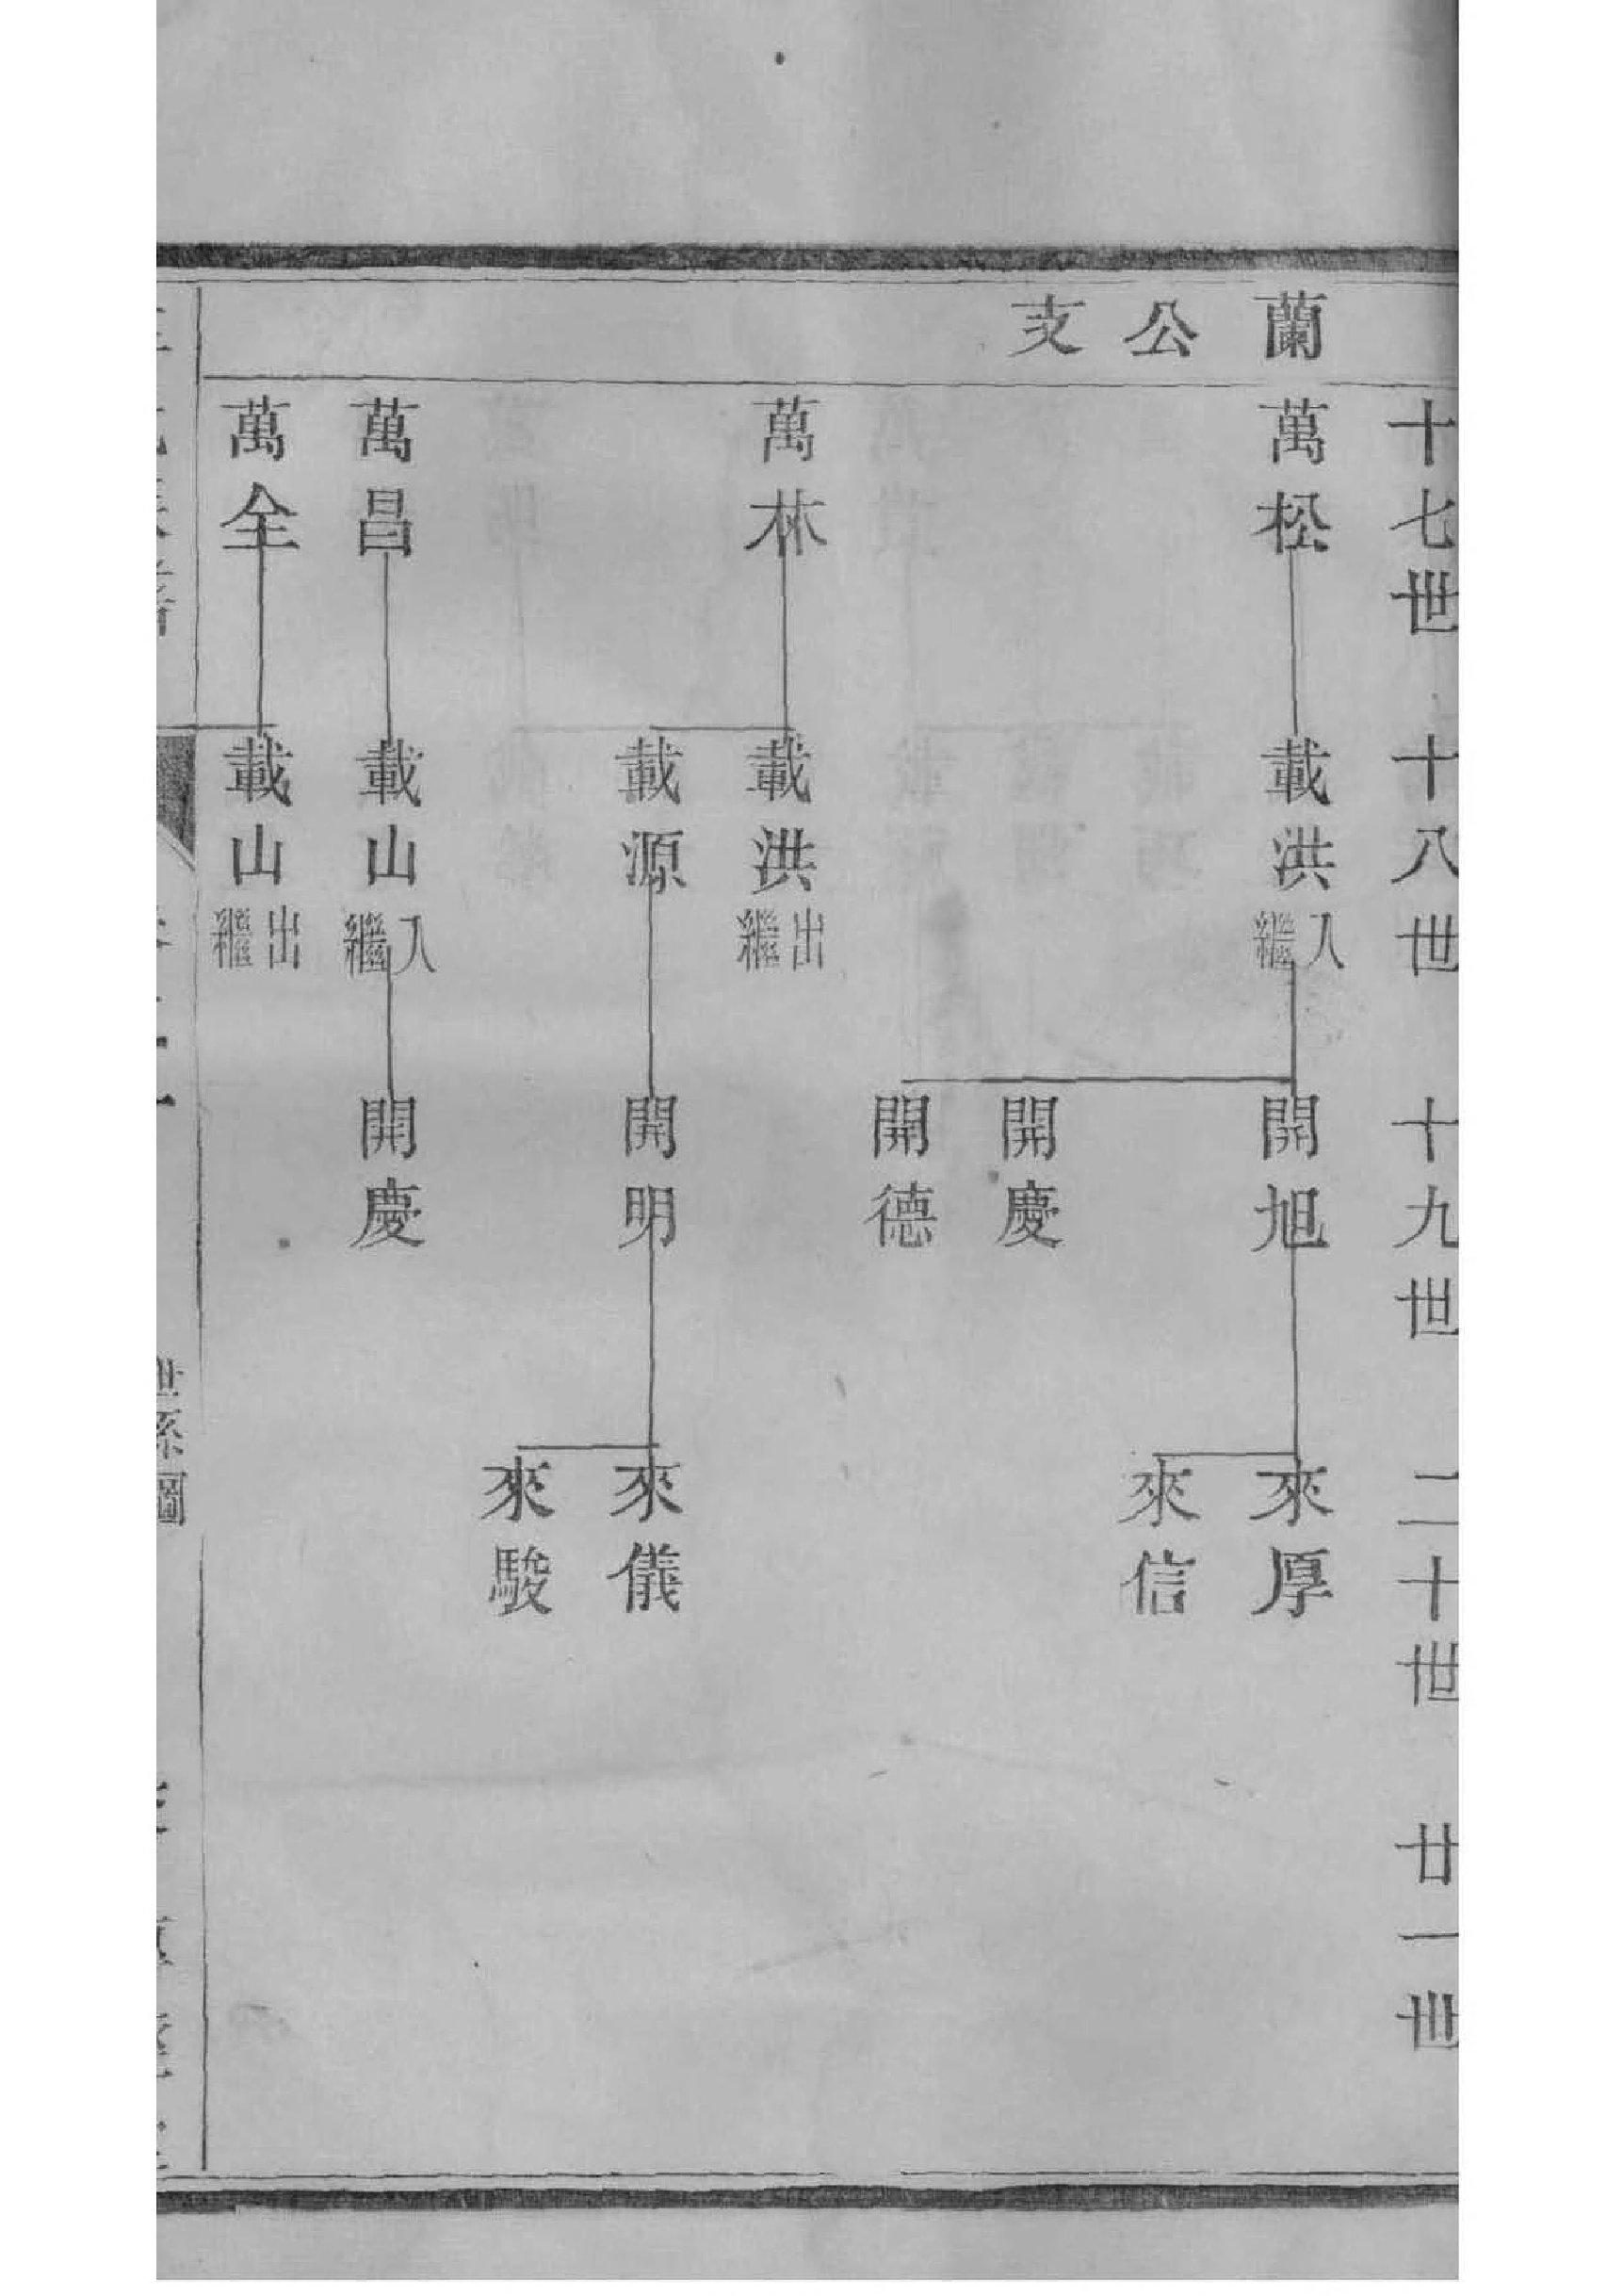 蘭公支
十七世
十八世
十九世
二十世
廿一世
萬松
載洪
入繼
開旭
來厚
來信
開慶
開德
萬林
載洪
出繼
載源
開明
來儀
來駿
萬昌
載山
入繼
開慶
萬全
載山
出繼
世系圖